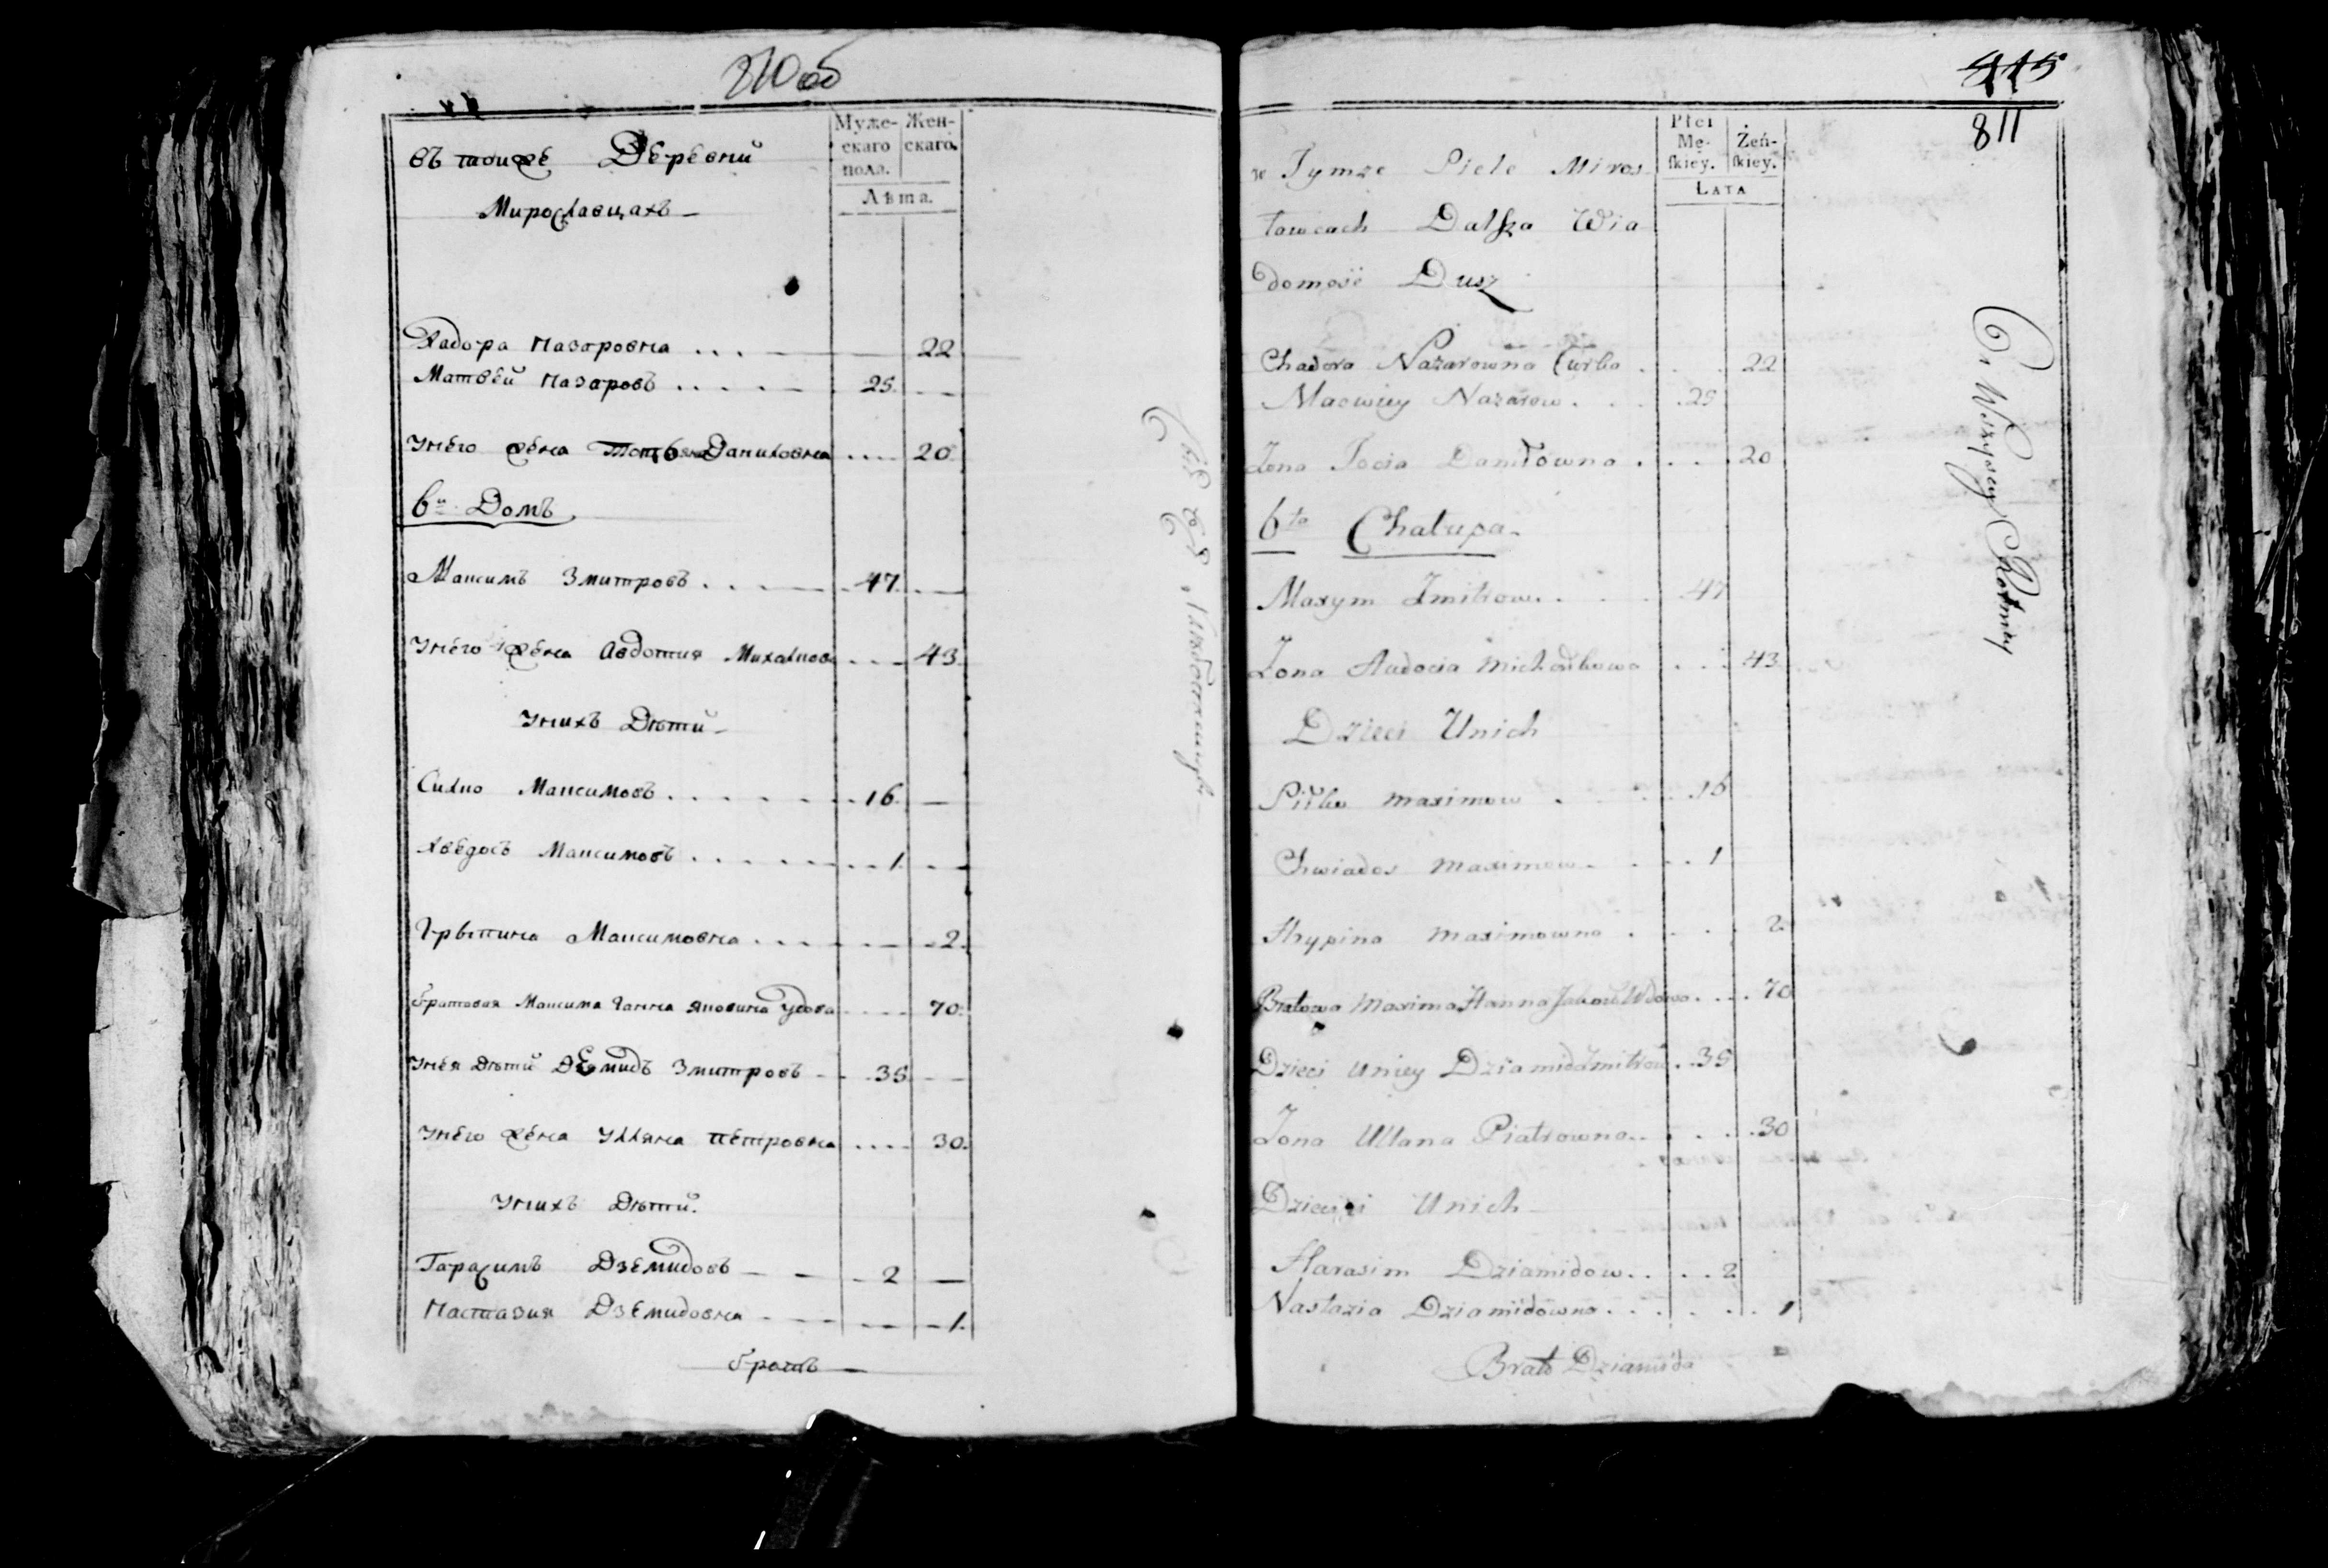 810 об
въ тойже Деревни
Мирославцахъ
Муже-скаго пола. Жен-скаго.
Лѣта.
Хадора Назаровна . . . 22
Матвѣй Назаровъ . . . . . 25
Унего жена Даниловна . . . 20
6й Домъ
Максимъ Змитровъ . . . . 47
Унего жена Авдотия Михалков . . . 43
Унихъ Дѣти
Силко Максимовъ . . . . . . 16
Хведосъ Максимовъ . . . . . . 1
Грыпина Максимовна . . . . 2
братовая Максима Ганна Яковина удова . . . . 70
Унея Дѣти Демидъ Змитровъ 35
Унего жена Улляна Петровна . . . . 30
Унихъ Дѣти
Гарасимъ Дземидовъ 2
Настазия Дземидовна 1
братъ
415
811
Płci Mę-ſkiey. Żeń-ſkiey.
LATA
w Tymże Siele Miros
ławcach Dalsza Wia
domość Dusz
Chadora Nazarowna Curka . . . 22
Maciwiey Nazarow . . . 25
Zona Daniłowna . . . . 20
6ta Chałupa
Maxym Zmitrow . . . 47
Zona Audocia Michałkowa . . . 43
Dzieci Unich
Siłko Maximow . . . 16
Chwiados Maximow . . . 1
Hrypina Maximowna . . . . 2
Bratowa Maxima Hanna Wdowa . . . . 70
Dzieci Uniey Dziamid Zmitrow . . 35
Zona Ullana Piatrowna . . . . 30
Dzieci Unich
Harasim Dziamidow . . . . 2
Nastazia Dziamidowna . . . . . . 1
Brat Dziamida